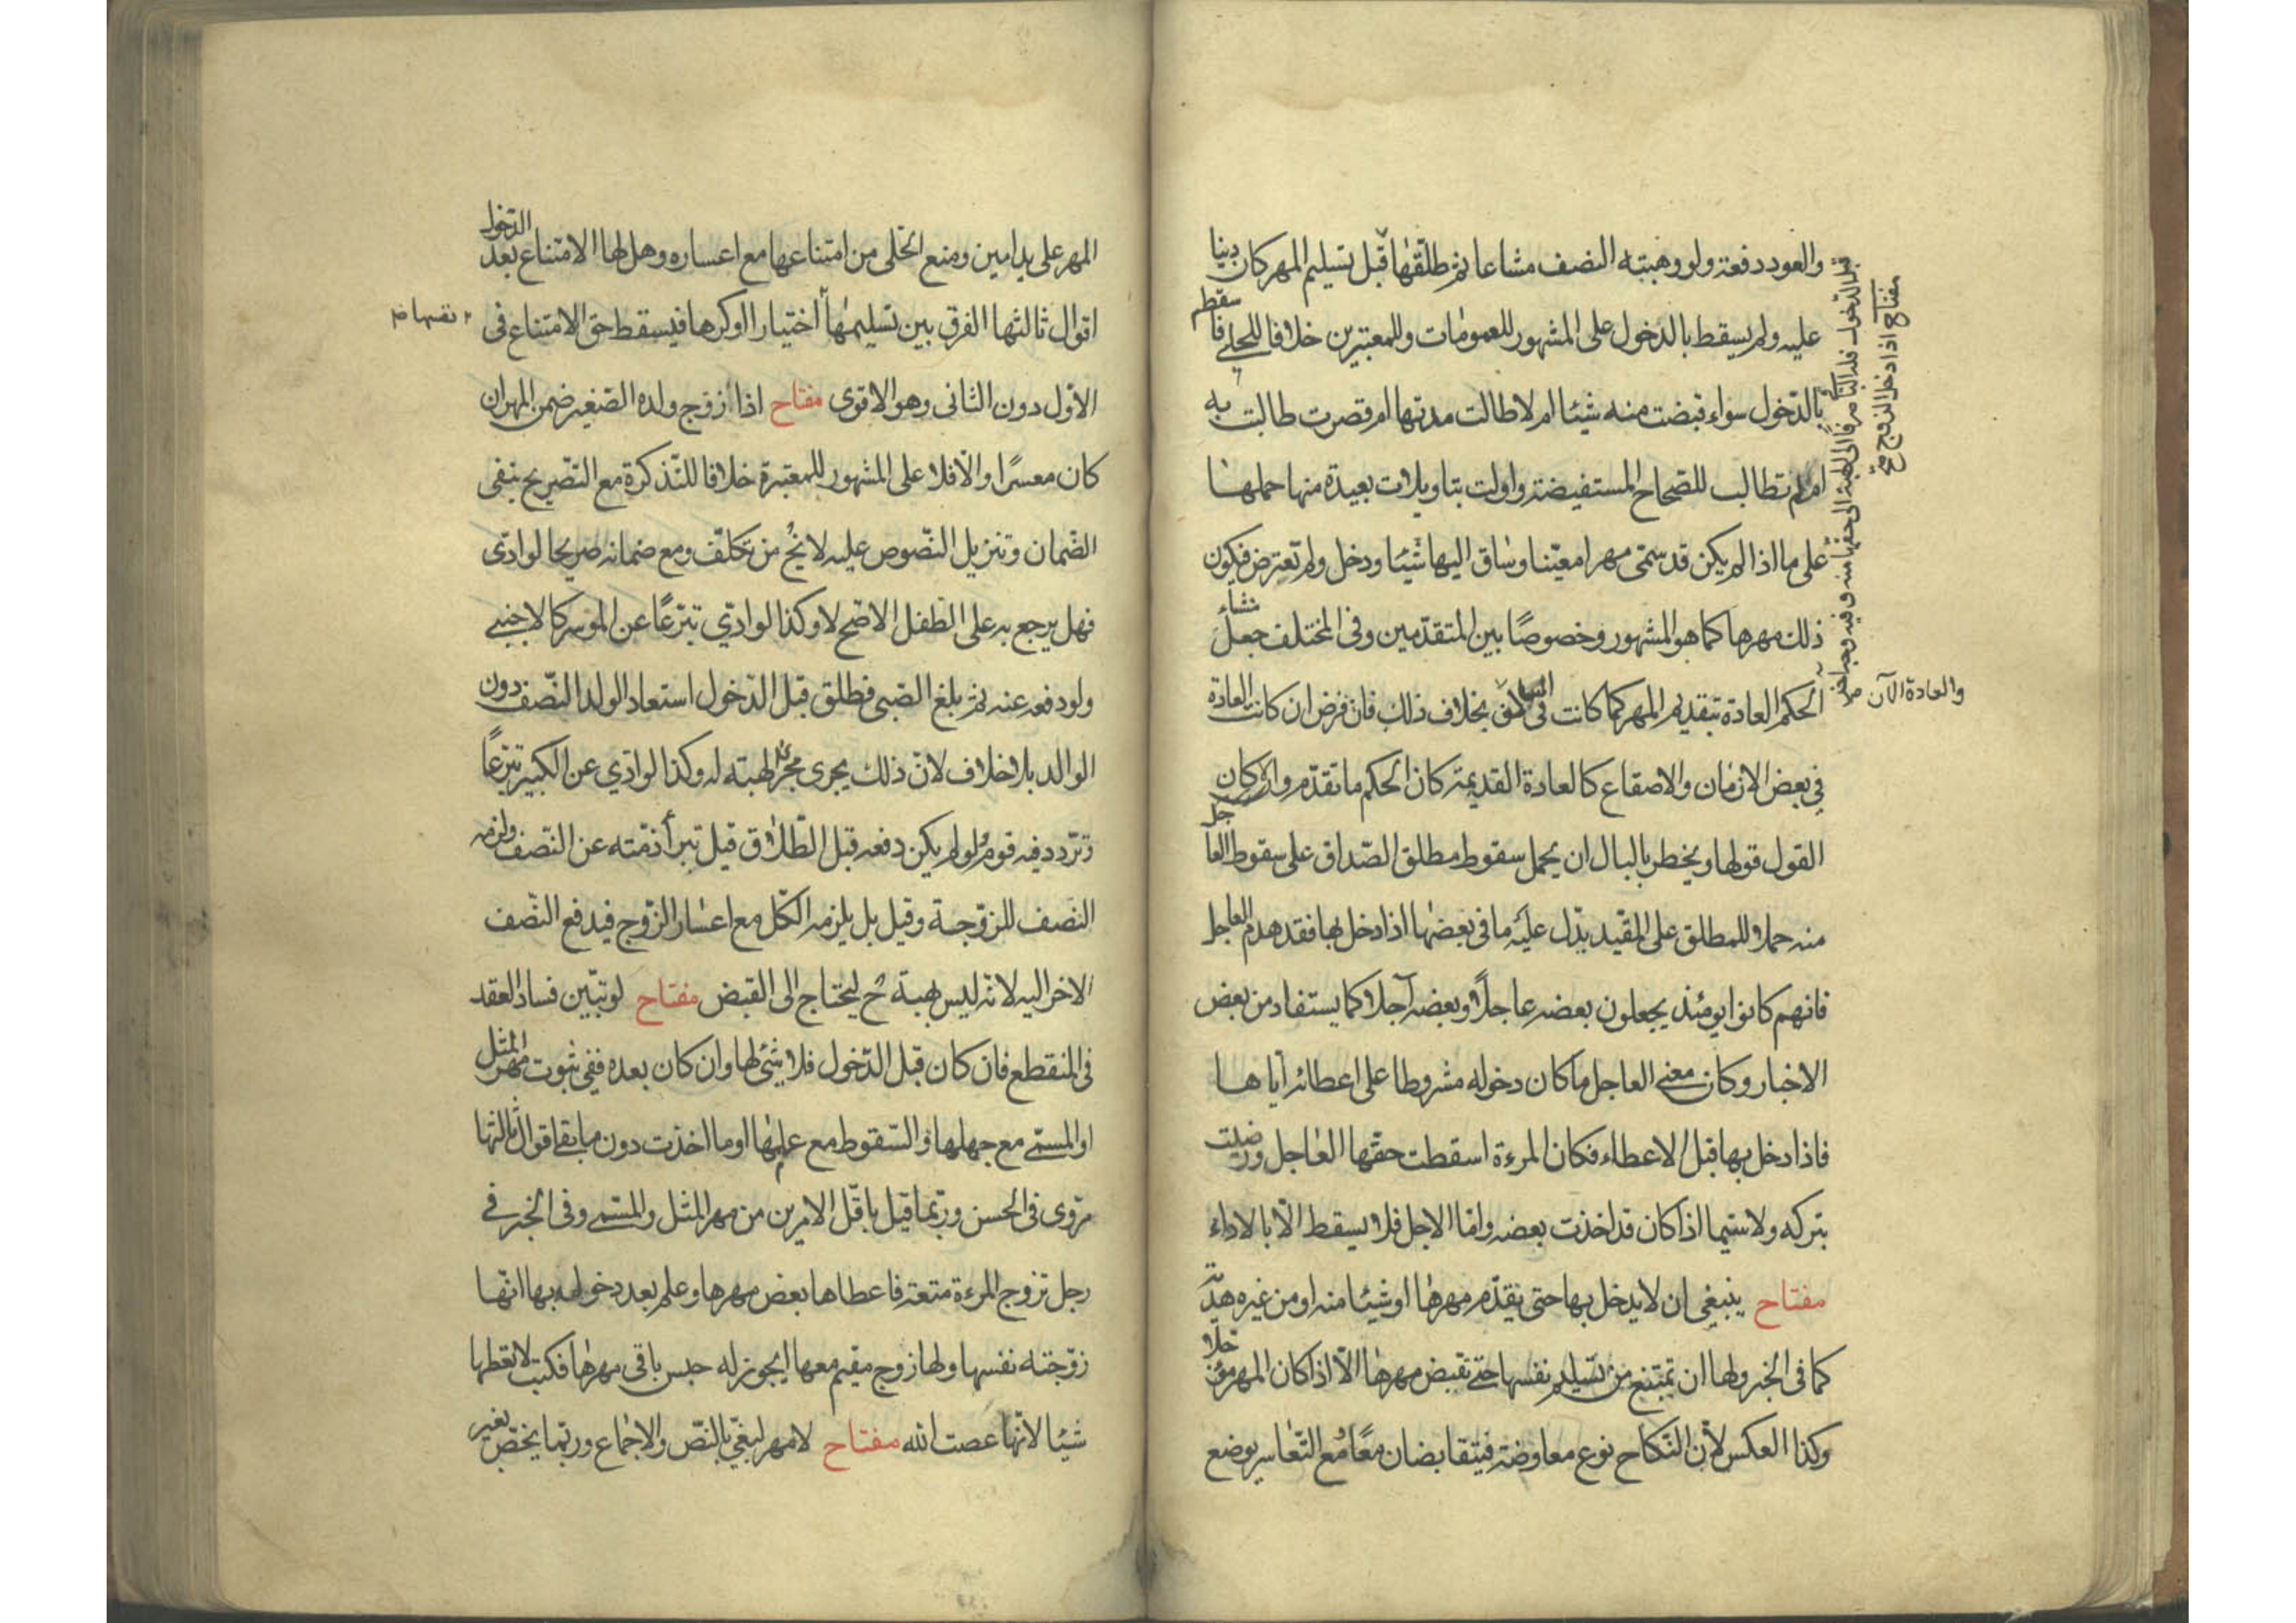 والعود دفعة ولو وهبته النصف مشاعا ثم طلقها قبل تسليم المهر كان دينا
عليه ولم يسقط بالدخول على المشهور للعمومات وللمعتبرين خلافا للحلي فاسقط
بالدخول سواء قبضت منه شيئا ام لا طالت مدتها ام قصرت طالبت به
ام لم تطالب للصحاح المستفيضة واولت بتاويلات بعيدة منها حملها
على ما اذا لم يكن قد سمى مهرا معينا وساق اليها شيئا ودخل ولم تعترض فيكون
ذلك مهرها كما هو المشهور وخصوصا بين المتقدمين وفي المختلف جعل منشاء
الحكم العادة بتقديم المهر كما كانت في السالف بخلاف ذلك فان فرض ان كانت العادة
في بعض الازمان والاصقاع كالعادة القديمة كان الحكم ما تقدم والا كان
القول قولها ويخطر بالبال ان يحمل سقوط مطلق الصداق على سقوط العاجل
منه حملا للمطلق على المقيد يدل عليه ما في بعضها اذا دخل بها فقد هدم العاجل
فانهم كانوا يومئذ يجعلون بعضه عاجلا وبعضه آجلا كما يستفاد من بعض
الاخبار وكان معنى العاجل ما كان دخوله مشروطا على اعطائه اياها
فاذا دخل بها قبل الاعطاء فكان المرءة اسقطت حقها العاجل ورضيت
بتركه ولا سيما اذا كان قد اخذت بعضه واما الاجل فلا يسقط الا بالاداء
مفتاح ينبغي ان لا يدخل بها حتى يقدم مهرها او شيئا منه او من غيره هدية
كما في الخبر ولها ان تمتنع من تسليم نفسها حتى تقبض مهرها الا اذا كان المهر مؤجلا
وكذا العكس لان النكاح نوع معاوضة فيتقابضان معا مع التعاسر بوضع
مفتاح اذا دخل الزوج
قبل الدخول فله
والعادة الآن
المهر على يد امين ومنع الحلي من امتناعها مع اعساره وهل لها الامتناع بعد الدخول
اقوال ثالثها الفرق بين تسليمها اختيارا او كرها فيسقط حق الامتناع في
نفسها
الاول دون الثاني وهو الاقوى مفتاح اذا زوج ولده الصغير ضمن المهر ان
كان معسرا والا فلا على المشهور للمعتبرة خلافا للتذكرة مع التصريح بنفي
الضمان وتنزيل النصوص عليه لا يخ من تكلف ومع ضمانه صريحا لو ادى
فهل يرجع به على الطفل الاصح لا وكذا لو ادى تبرعا عن الموسر كالاجنبي
ولو دفعه عنه ثم بلغ الصبي فطلق قبل الدخول استعاد الولد النصف دون
الوالد بلا خلاف لان ذلك يجري مجرى الهبة له وكذا لو ادى عن الكبير تبرعا
وتردد فيه قوم ولو لم يكن دفعه قبل الطلاق قيل تبرأ ذمته عن النصف ولزمه
النصف للزوجة وقيل بل يلزمه الكل مع اعسار الزوج فيدفع النصف
الاخر اليه لانه ليس لهبة ح ليحتاج الى القبض مفتاح لو تبين فساد العقد
في المنقطع فان كان قبل الدخول فلا شئ لها وان كان بعده ففي ثبوت مهر المثل
او المسمى مع جهلها والسقوط مع علمها او ما اخذت دون ما بقي اقوال ثالثها
مروي في الحسن وربما قيل باقل الامرين من مهر المثل والمسمى وفي الخبر في
رجل تزوج المرءة متعة فاعطاها بعض مهرها وعلم بعد دخوله بها انها
زوجته نفسها ولها زوج مقيم معها ايجوز له حبس باقي مهرها فكتب لا تعطها
شيئا لانها عصت الله مفتاح لا مهر لبغي بالنص والاجماع وربما يخص بغير